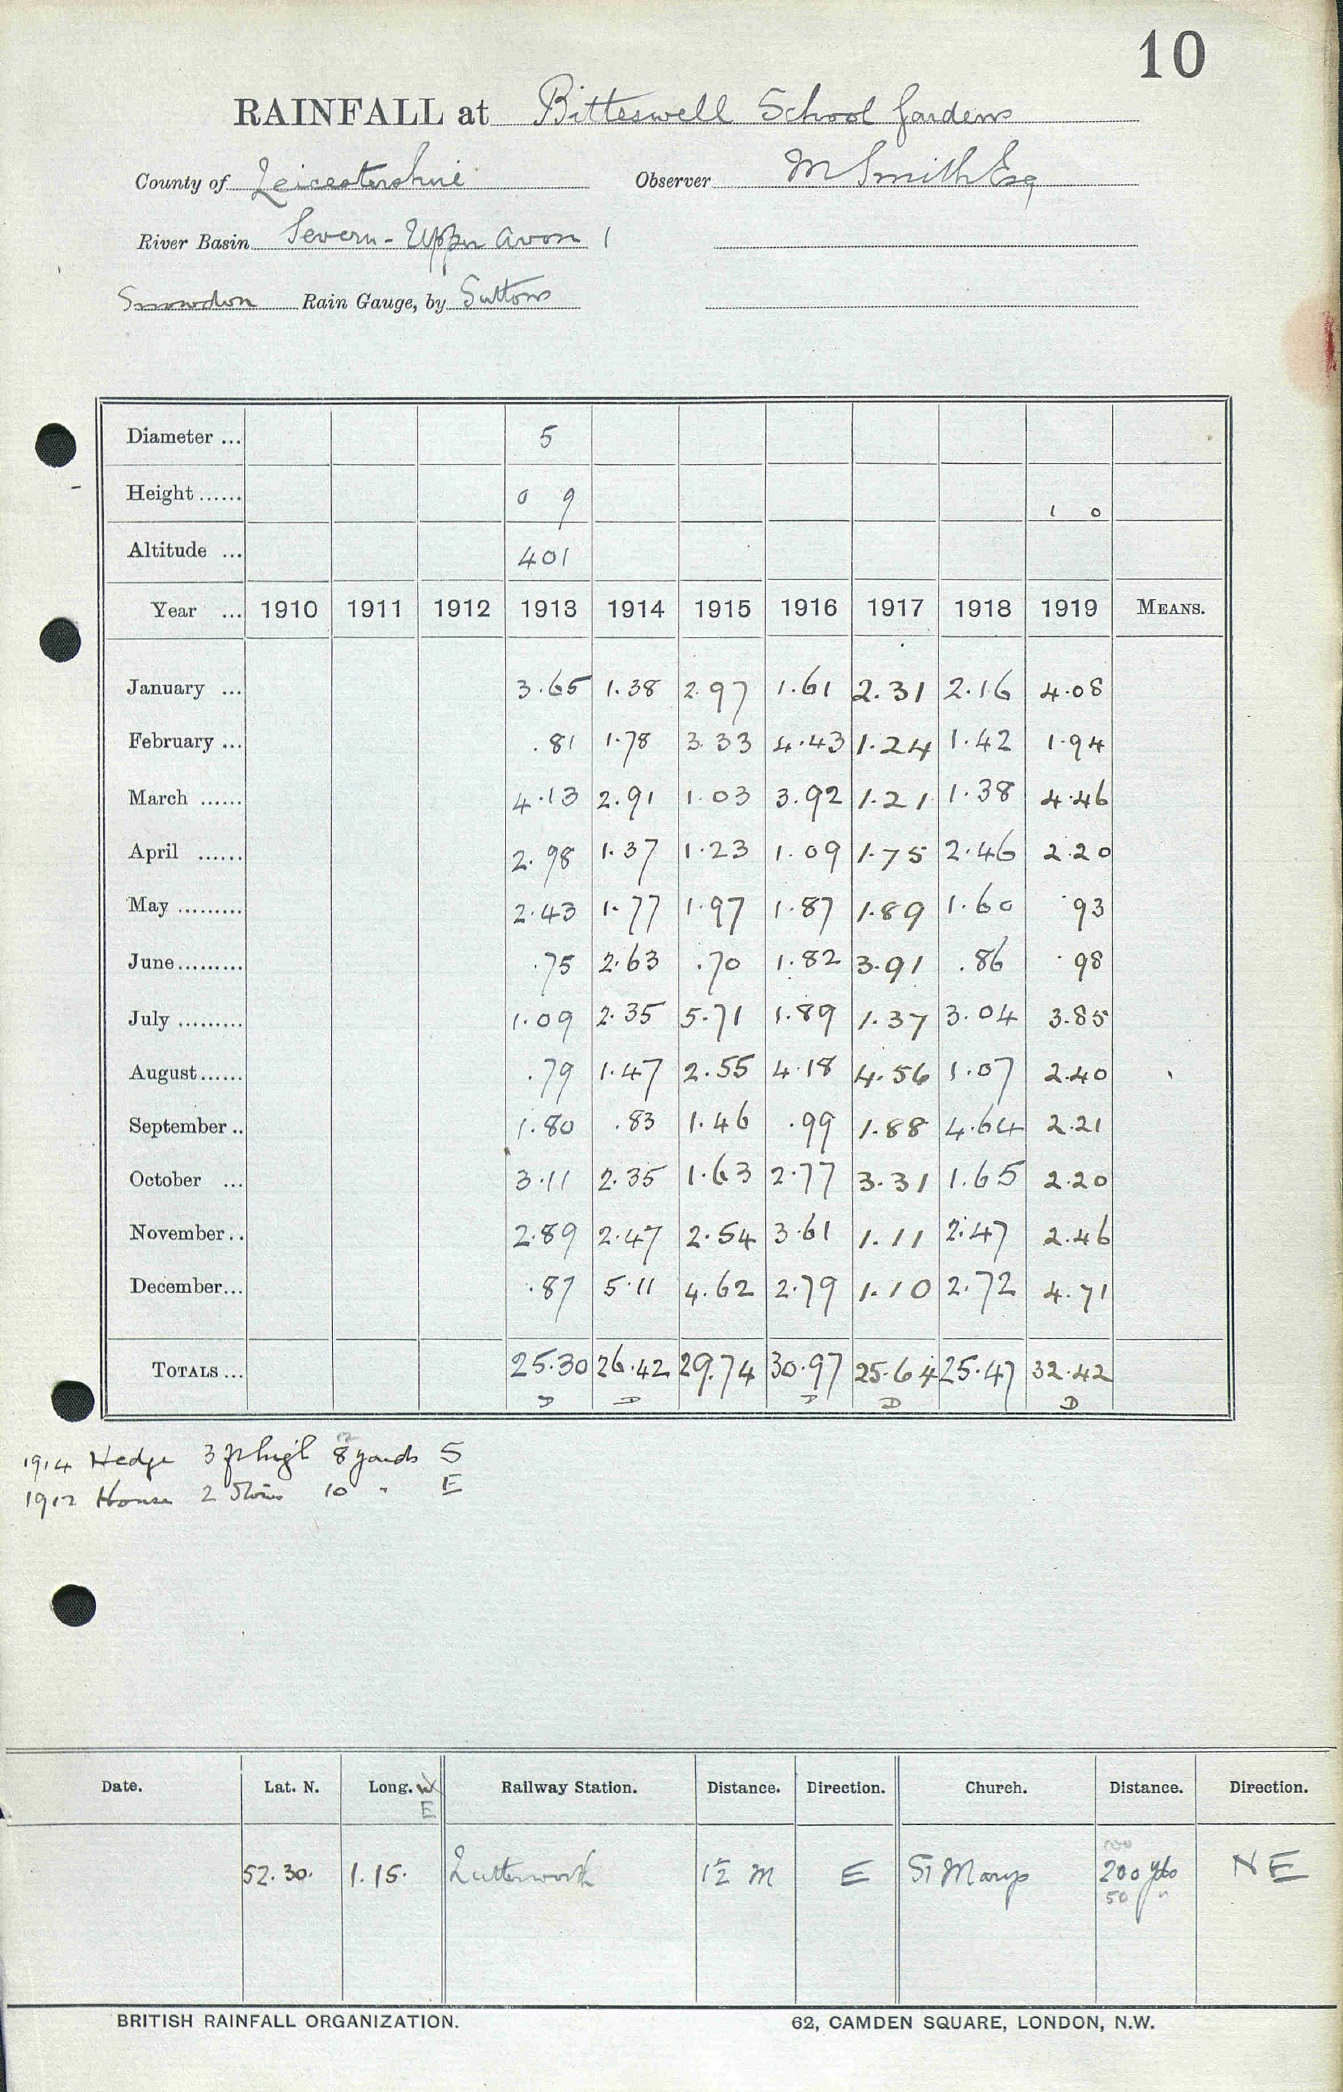 10
RAINFALL at Bitteswell School Gardens
County of Leicestershire Observer M Smith Esq
River Basin Severn - Upper Avon 1
Snowdon Rain Gauge, by Suttons
Diameter ... 5
Height ...... 0 9 1 0
Altitude ... 401
Year ... 1910 1911 1912 1913 1914 1915 1916 1917 1918 1919 MEANS.
January ... 3.65 1.38 2.97 1.61 2.31 2.16 4.08
February ... .81 1.78 3.33 4.43 1.24 1.42 1.94
March ...... 4.13 2.91 1.03 3.92 1.21 1.38 4.46
April ...... 2.98 1.37 1.23 1.09 1.75 2.46 2.20
May ......... 2.43 1.77 1.97 1.87 1.89 1.60 .93
June ......... .75 2.63 .70 1.82 3.91 .86 .98
July ......... 1.09 2.35 5.71 1.89 1.37 3.04 3.85
August ...... .79 1.47 2.55 4.18 4.56 1.07 2.40
September .. 1.80 .83 1.46 .99 1.88 4.64 2.21
October ... 3.11 2.35 1.63 2.77 3.31 1.65 2.20
November .. 2.89 2.47 2.54 3.61 1.11 2.47 2.46
December ... .87 5.11 4.62 2.79 1.10 2.72 4.71
TOTALS ... 25.30 26.42 29.74 30.97 25.64 25.47 32.42
D D D D D
1914 Hedge 3 ft high 8 yards S
House 2 Stories 10 " E
Date. Lat. N. Long. W Railway Station. Distance. Direction. Church. Distance. Direction.
E
100
52.30. 1.15. Lutterworth 1½ M E St Marys 200 yds NE
50 "
BRITISH RAINFALL ORGANIZATION. 62, CAMDEN SQUARE, LONDON, N.W.